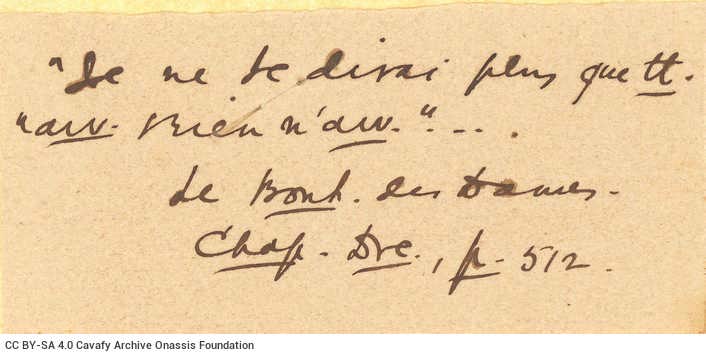 "Je ne te dirai plus que tt.
"arr. Rien n'arr."....
Le Bonh. des Dames.
Chap. Dre., p. 512.
CC BY-SA 4.0 Cavafy Archive Onassis Foundation